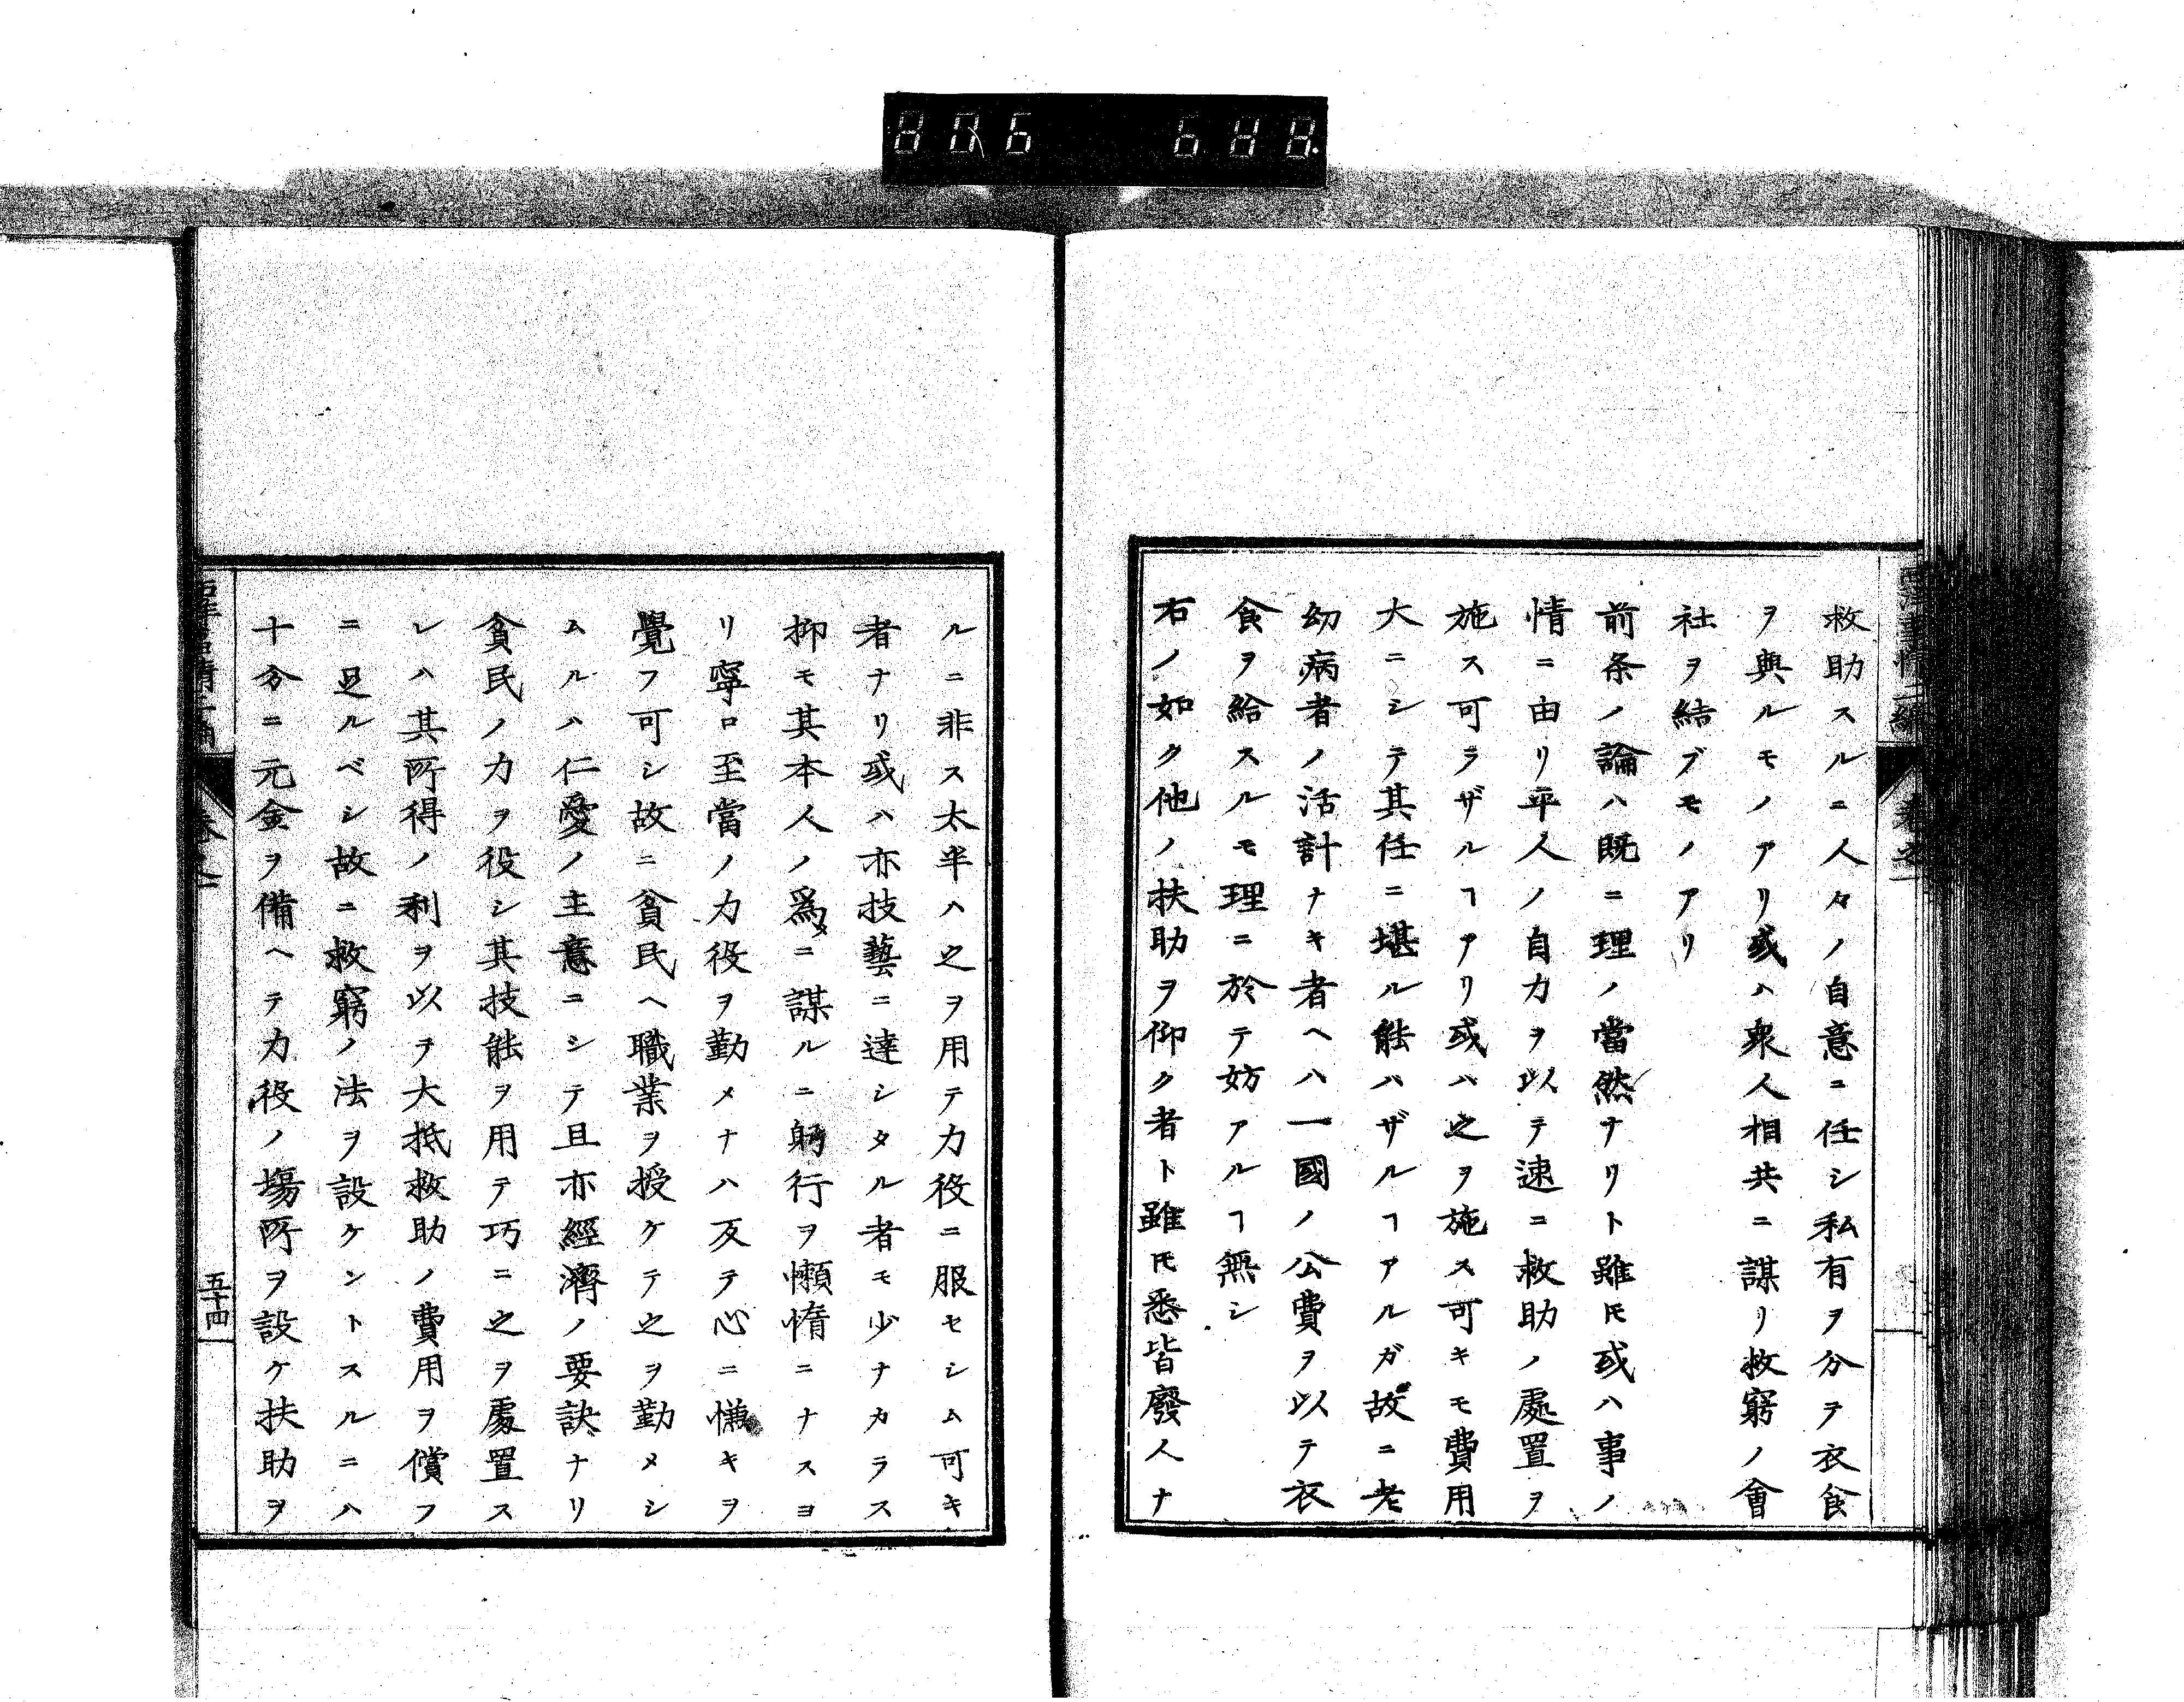 救助スルニ人々ノ自意ニ任シ私有ヲ分テ衣食
ヲ與ルモノアリ或ハ衆人相共ニ謀リ救窮ノ會
社ヲ結ブモノアリ
前条ノ論ハ既ニ理ノ當然ナリト雖𪜈或ハ事ノ
情ニ由リ平人ノ自力ヲ以テ速ニ救助ノ處置ヲ
施ス可ラザルヿアリ或ハ之ヲ施ス可キモ費用
大ニシテ其任ニ堪ル能ハザルヿアルガ故ニ老
幼病者ノ活計ナキ者ヘハ一國ノ公費ヲ以テ衣
食ヲ給スルモ理ニ於テ妨アルヿ無シ
右ノ如ク他ノ扶助ヲ仰ク者ト雖𪜈悉皆廢人ナ
ルニ非ス太半ハ之ヲ用テ力役ニ服セシム可キ
者ナリ或ハ亦技藝ニ達シタル者モ少ナカラス
抑モ其本人ノ爲メニ謀ルニ躬行ヲ懶惰ニナスヨ
リ寧ロ至當ノ力役ヲ勤メナハ反テ心ニ慊キヲ
覺フ可シ故ニ貧民ヘ職業ヲ授ケテ之ヲ勤メシ
ムルハ仁愛ノ主意ニシテ且亦經濟ノ要訣ナリ
貧民ノ力ヲ役シ其技能ヲ用テ巧ニ之ヲ處置ス
レハ其所得ノ利ヲ以テ大抵救助ノ費用ヲ償フ
ニ足ルベシ故ニ救窮ノ法ヲ設ケントスルニハ
十分ニ元金ヲ備ヘテ力役ノ場所ヲ設ケ扶助ヲ
五十四